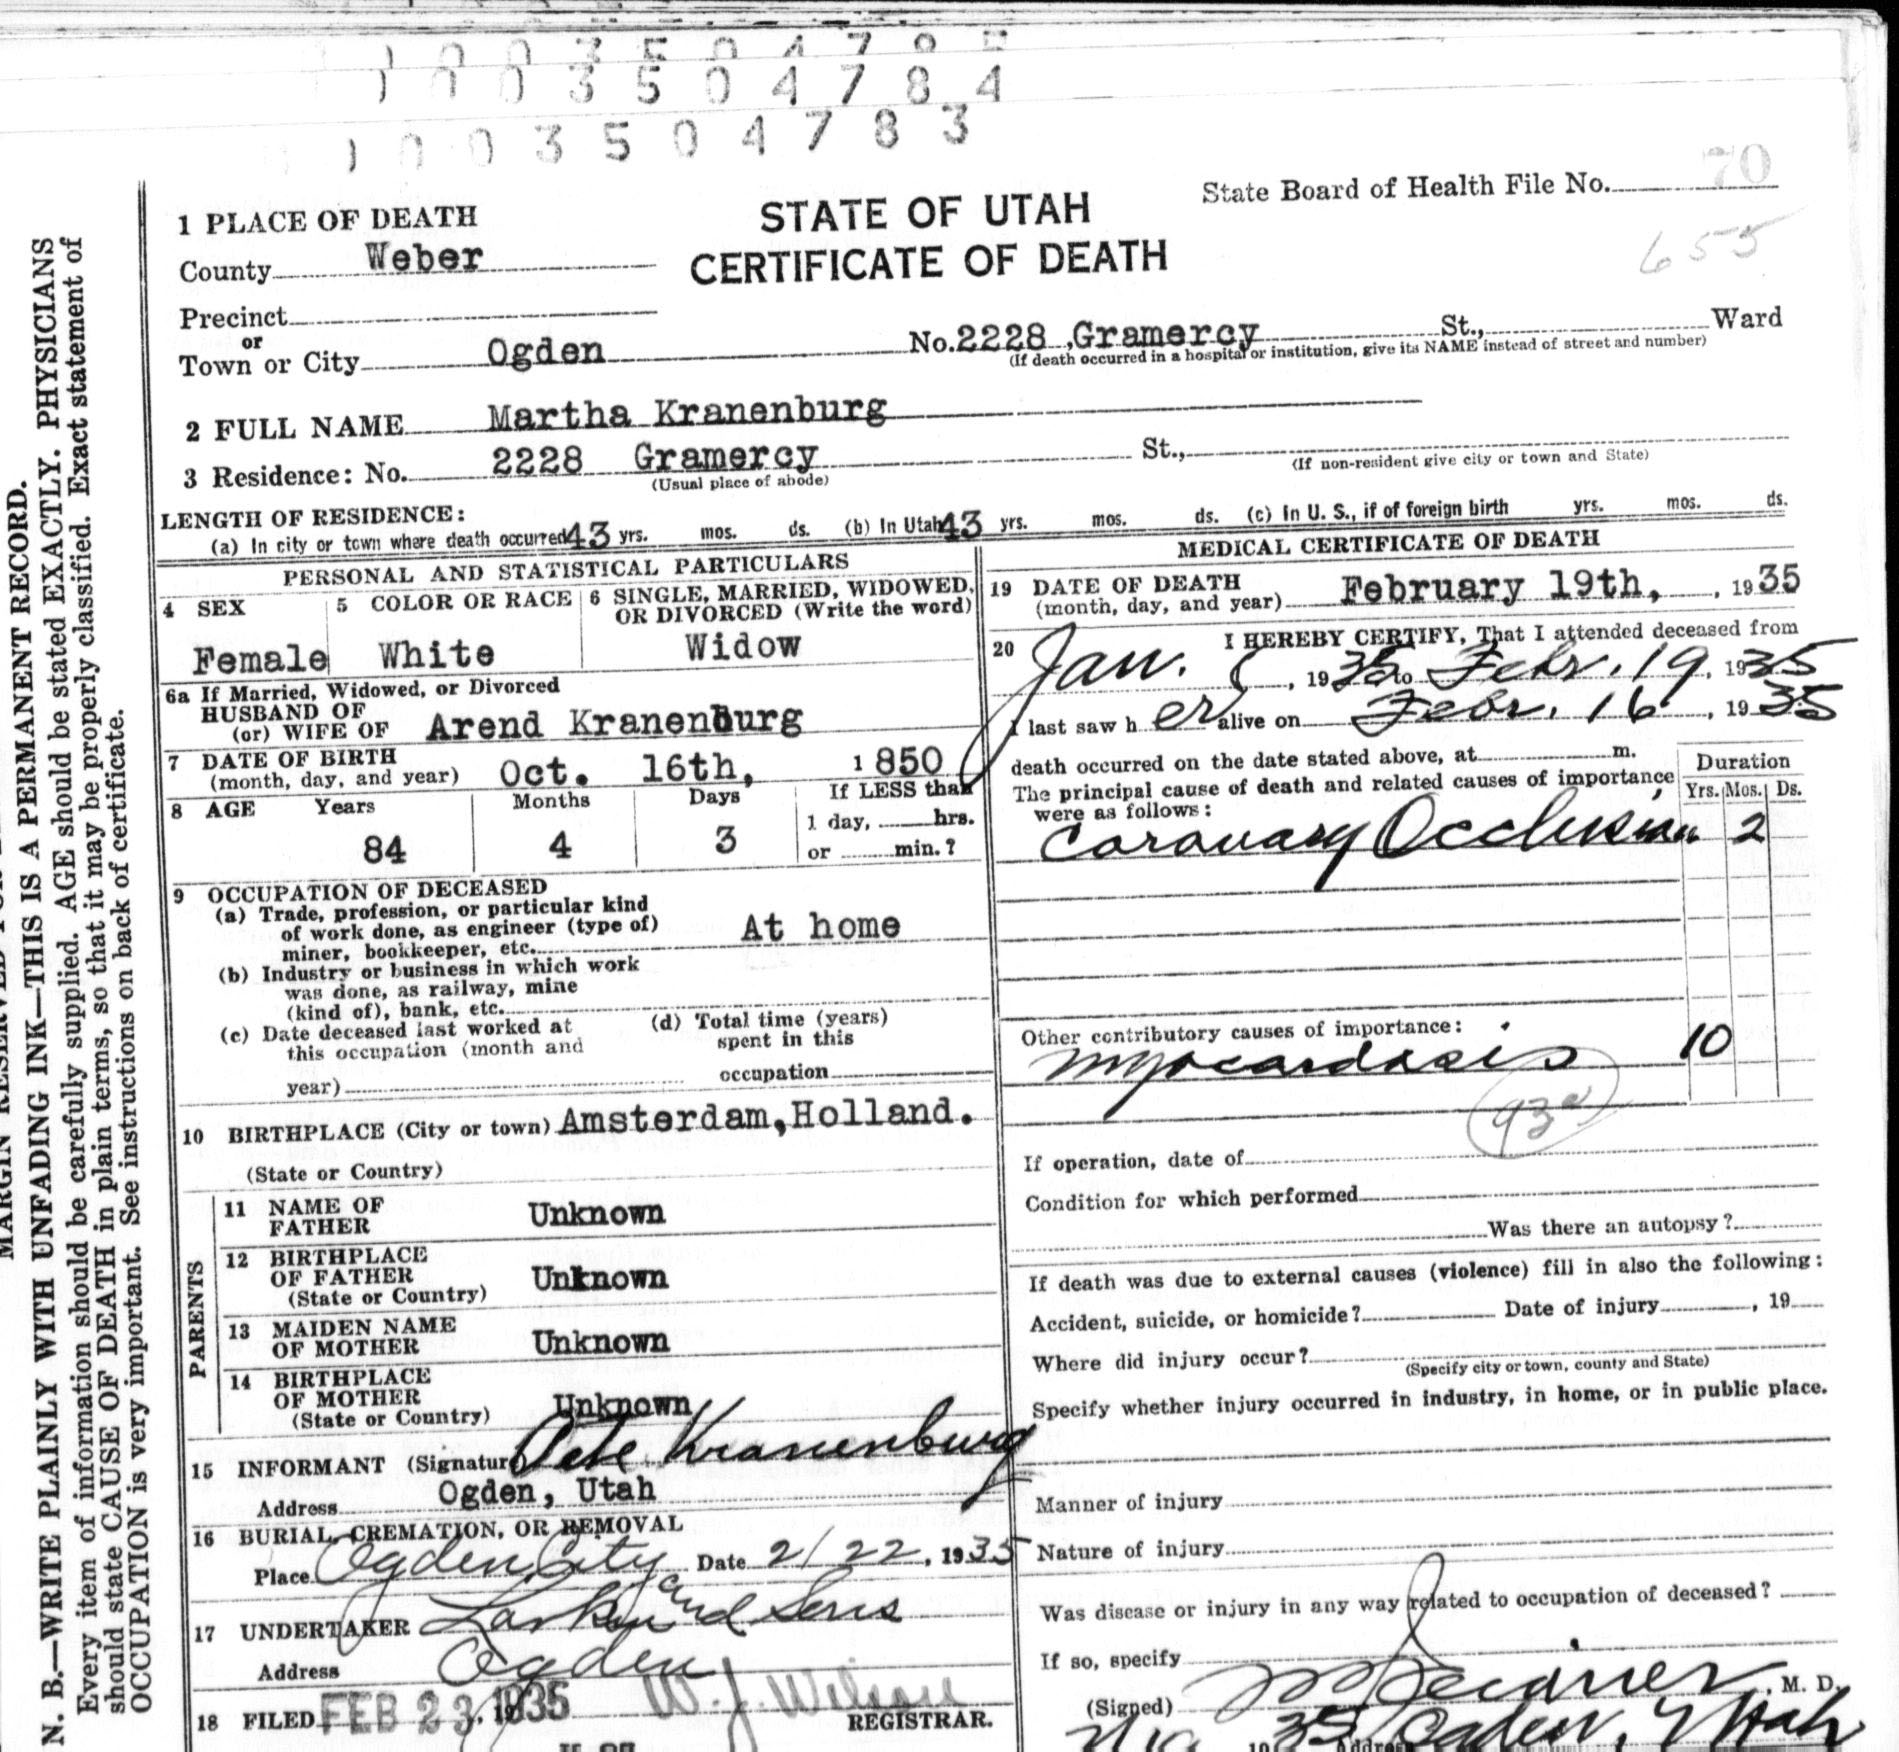 1 0 0 3 5 0 4 7 8 5
1 0 0 3 5 0 4 7 8 4
1 0 0 3 5 0 4 7 8 3
State Board of Health File No. 70
655
STATE OF UTAH
CERTIFICATE OF DEATH
1 PLACE OF DEATH
County Weber
Precinct
or
Town or City Ogden No. 2228 ,Gramercy St., Ward
(If death occurred in a hospital or institution, give its NAME instead of street and number)
2 FULL NAME Martha Kranenburg
3 Residence: No. 2228 Gramercy St.,
(Usual place of abode) (If non-resident give city or town and State)
LENGTH OF RESIDENCE:
(a) In city or town where death occurred 43 yrs. mos. ds. (b) In Utah 43 yrs. mos. ds. (c) In U. S., if of foreign birth yrs. mos. ds.
PERSONAL AND STATISTICAL PARTICULARS
4 SEX 5 COLOR OR RACE 6 SINGLE, MARRIED, WIDOWED,
OR DIVORCED (Write the word)
Female White Widow
6a If Married, Widowed, or Divorced
HUSBAND OF
(or) WIFE OF Arend Kranenburg
7 DATE OF BIRTH
(month, day, and year) Oct. 16th, 1 850
8 AGE Years Months Days If LESS than
1 day, hrs.
84 4 3 or min.?
9 OCCUPATION OF DECEASED
(a) Trade, profession, or particular kind
of work done, as engineer (type of)
miner, bookkeeper, etc. At home
(b) Industry or business in which work
was done, as railway, mine
(kind of), bank, etc.
(c) Date deceased last worked at (d) Total time (years)
this occupation (month and spent in this
year) occupation
10 BIRTHPLACE (City or town) Amsterdam,Holland.
(State or Country)
PARENTS
11 NAME OF
FATHER Unknown
12 BIRTHPLACE
OF FATHER Unknown
(State or Country)
13 MAIDEN NAME
OF MOTHER Unknown
14 BIRTHPLACE
OF MOTHER Unknown
(State or Country)
15 INFORMANT (Signature) Pete Kranenburg
Address Ogden, Utah
16 BURIAL, CREMATION, OR REMOVAL
Place Ogden City Date 2/22, 1935
17 UNDERTAKER Larkin and Sons
Address Ogden
18 FILED FEB 23, 1935 W. J. Wilson
REGISTRAR.
MEDICAL CERTIFICATE OF DEATH
19 DATE OF DEATH
(month, day, and year) February 19th, , 1935
20 I HEREBY CERTIFY, That I attended deceased from
Jan. , 1935 to Febr. 19, 1935
I last saw h er alive on Febr. 16, 1935
death occurred on the date stated above, at m.
The principal cause of death and related causes of importance
were as follows:
Duration
Yrs. Mos. Ds.
Coronary Occlusion 2
Other contributory causes of importance:
Myocardosis 10
93a
If operation, date of
Condition for which performed
Was there an autopsy?
If death was due to external causes (violence) fill in also the following:
Accident, suicide, or homicide? Date of injury , 19
Where did injury occur?
(Specify city or town, county and State)
Specify whether injury occurred in industry, in home, or in public place.
Manner of injury
Nature of injury
Was disease or injury in any way related to occupation of deceased?
If so, specify
(Signed) , M. D.
35 Address Ogden, Utah
N. B.—WRITE PLAINLY WITH UNFADING INK—THIS IS A PERMANENT RECORD.
Every item of information should be carefully supplied. AGE should be stated EXACTLY. PHYSICIANS
should state CAUSE OF DEATH in plain terms, so that it may be properly classified. Exact statement of
OCCUPATION is very important. See instructions on back of certificate.